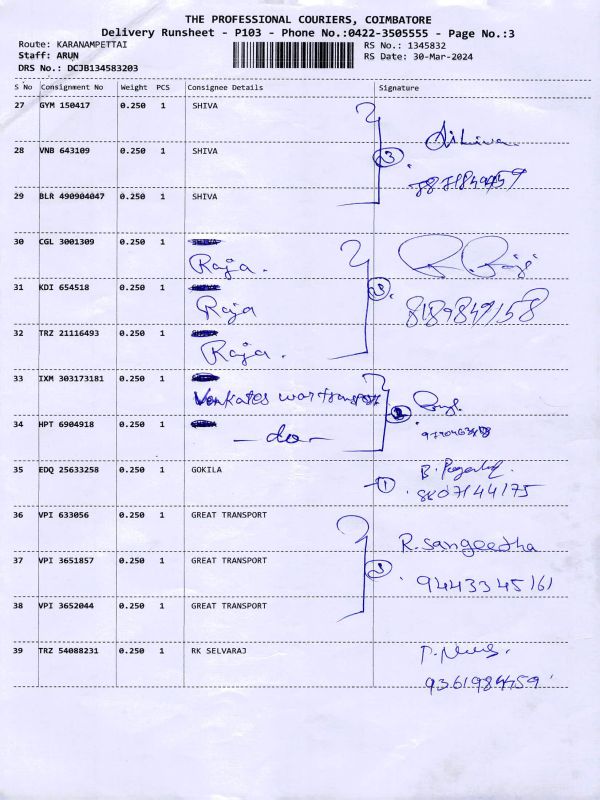 THE PROFESSIONAL COURIERS, COIMBATORE
Delivery Runsheet - P103 - Phone No.:0422-3505555 - Page No.:3
Route: KARANAMPETTAI RS No.: 1345832
Staff: ARUN RS Date: 30-Mar-2024
DRS No.: DCJB134583203
S No Consignment No Weight PCS Consignee Details Signature
27 GYM 150417 0.250 1 SHIVA
28 VNB 643109 0.250 1 SHIVA 3
29 BLR 490904047 0.250 1 SHIVA
30 CGL 3001309 0.250 1
Raja. R. Raja
31 KDI 654518 0.250 1
Raja
32 TRZ 21116493 0.250 1
Raja.
33 IXM 303173181 0.250 1
Venkateswar transport 2
34 HPT 6904918 0.250 1
-do-
35 EDQ 25633258 0.250 1 GOKILA 1
8807144175
36 VPI 633056 0.250 1 GREAT TRANSPORT
R. Sangeetha
37 VPI 3651857 0.250 1 GREAT TRANSPORT 3
9443345161
38 VPI 3652044 0.250 1 GREAT TRANSPORT
39 TRZ 54088231 0.250 1 RK SELVARAJ
9361984459